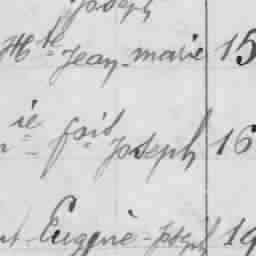 Joseph
Jean-marie 15
ie fois Joseph 16
Eugène-Joseph 19